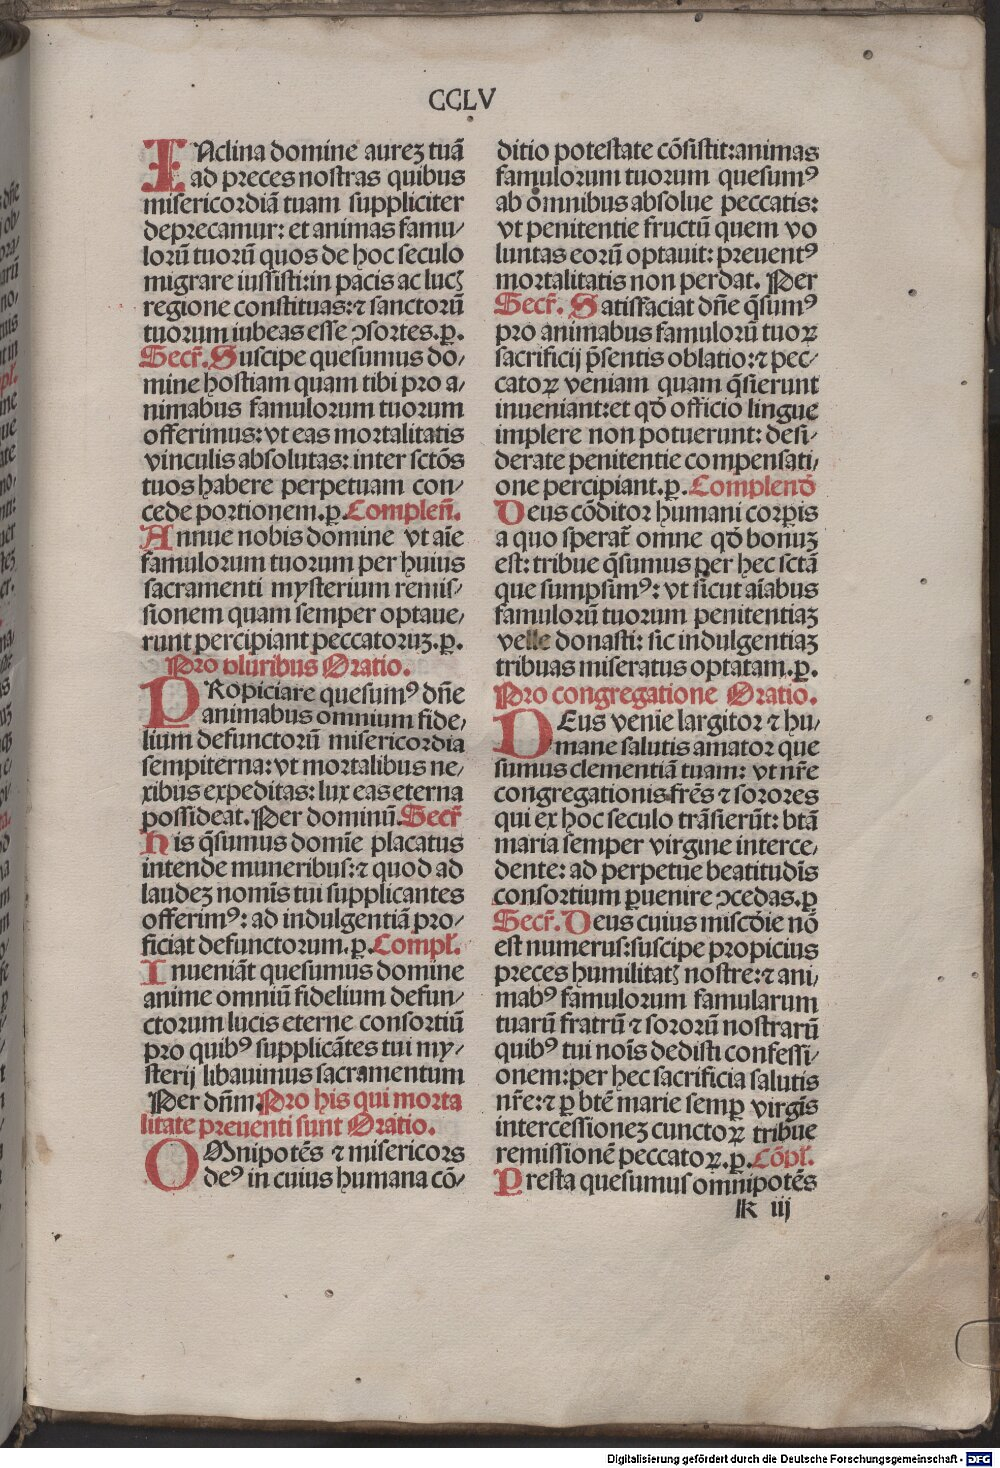 CCLV
INclina domine aurez tuã
ad preces nostras quibus
misericordiã tuam suppliciter
deprecamur: et animas famu⸗
lorũ tuorũ quos de hoc seculo
migrare iussisti: in pacis ac lucꝭ
regione constituas: ⁊ sanctorũ
tuorum iubeas esse ↄsortes. ꝑ.
Secr̃. Suscipe quesumus do⸗
mine hostiam quam tibi pro a⸗
nimabus famulorum tuorum
offerimus: vt eas mortalitatis
vinculis absolutas: inter sctõs
tuos habere perpetuam con⸗
cede portionem. ꝑ. Compleñ.
Annue nobis domine vt aĩe
famulorum tuorum per huius
sacramenti mysterium remis⸗
sionem quam semper optaue⸗
runt percipiant peccatoruz. ꝑ.
Pro pluribus Oratio.
PRopiciare quesumꝰ dñe
animabus omnium fide⸗
lium defunctorũ misericordia
sempiterna: vt mortalibus ne⸗
xibus expeditas: lux eas eterna
possideat. Per dominũ. Secr̃
His q̃sumus domĩe placatus
intende muneribus: ⁊ quod ad
laudez nomĩs tui supplicantes
offerimꝰ: ad indulgentiã pro⸗
ficiat defunctorum. ꝑ. Compl̃.
Inueniãt quesumus domine
anime omniũ fidelium defun⸗
ctorum lucis eterne consortiũ
pro quibꝰ supplicãtes tui my⸗
sterij libauimus sacramentum
Per dñm. Pro his qui morta
litate preuenti sunt Oratio.
OMnipotẽs ⁊ misericors
deꝰ in cuius humana cõ⸗
ditio potestate cõsistit: animas
famulorum tuorum quesumꝰ
ab omnibus absolue peccatis:
vt penitentie fructũ quem vo
luntas eorũ optauit: preuentꝰ
mortalitatis non perdat. Per
Secr̃. Satisfaciat dñe q̃sumꝰ
pro animabus famulorũ tuoꝝ
sacrificij p̃sentis oblatio: ⁊ pec⸗
catoꝝ veniam quam q̃sierunt
inueniant: et qđ officio lingue
implere non potuerunt: desi⸗
derate penitentie compensati⸗
one percipiant. ꝑ. Complenđ
Deus cõditor humani corꝑis
a quo sperat̃ omne qđ bonuz
est: tribue q̃sumus per hec sctã
que sumpsimꝰ: vt sicut aĩabus
famulorũ tuorum penitentiaz
velle donasti: sic indulgentiaz
tribuas miseratus optatam. ꝑ.
Pro congregatione Oratio.
DEus venie largitor ⁊ hu⸗
mane salutis amator que
sumus clementiã tuam: vt nr̃e
congregationis frẽs ⁊ sorores
qui ex hoc seculo trãsierũt: btã
maria semper virgine interce⸗
dente: ad perpetue beatitudĩs
consortium ꝑuenire ↄcedas. ꝑ
Secr̃. Deus cuius miscđie nõ
est numerus: suscipe propicius
preces humilitatꝭ nostre: ⁊ ani⸗
mabꝰ famulorum famularum
tuarũ fratrũ ⁊ sororũ nostrarũ
quibꝰ tui noĩs dedisti confessi⸗
onem: per hec sacrificia salutis
nr̃e: ⁊ ꝑ btẽ marie semꝑ virgĩs
intercessionez cunctoꝝ tribue
remissionẽ peccatoꝝ. ꝑ. Cõpl̃.
Presta quesumus omnipotẽs
k iij
Digitalisierung gefördert durch die Deutsche Forschungsgemeinschaft - DFG